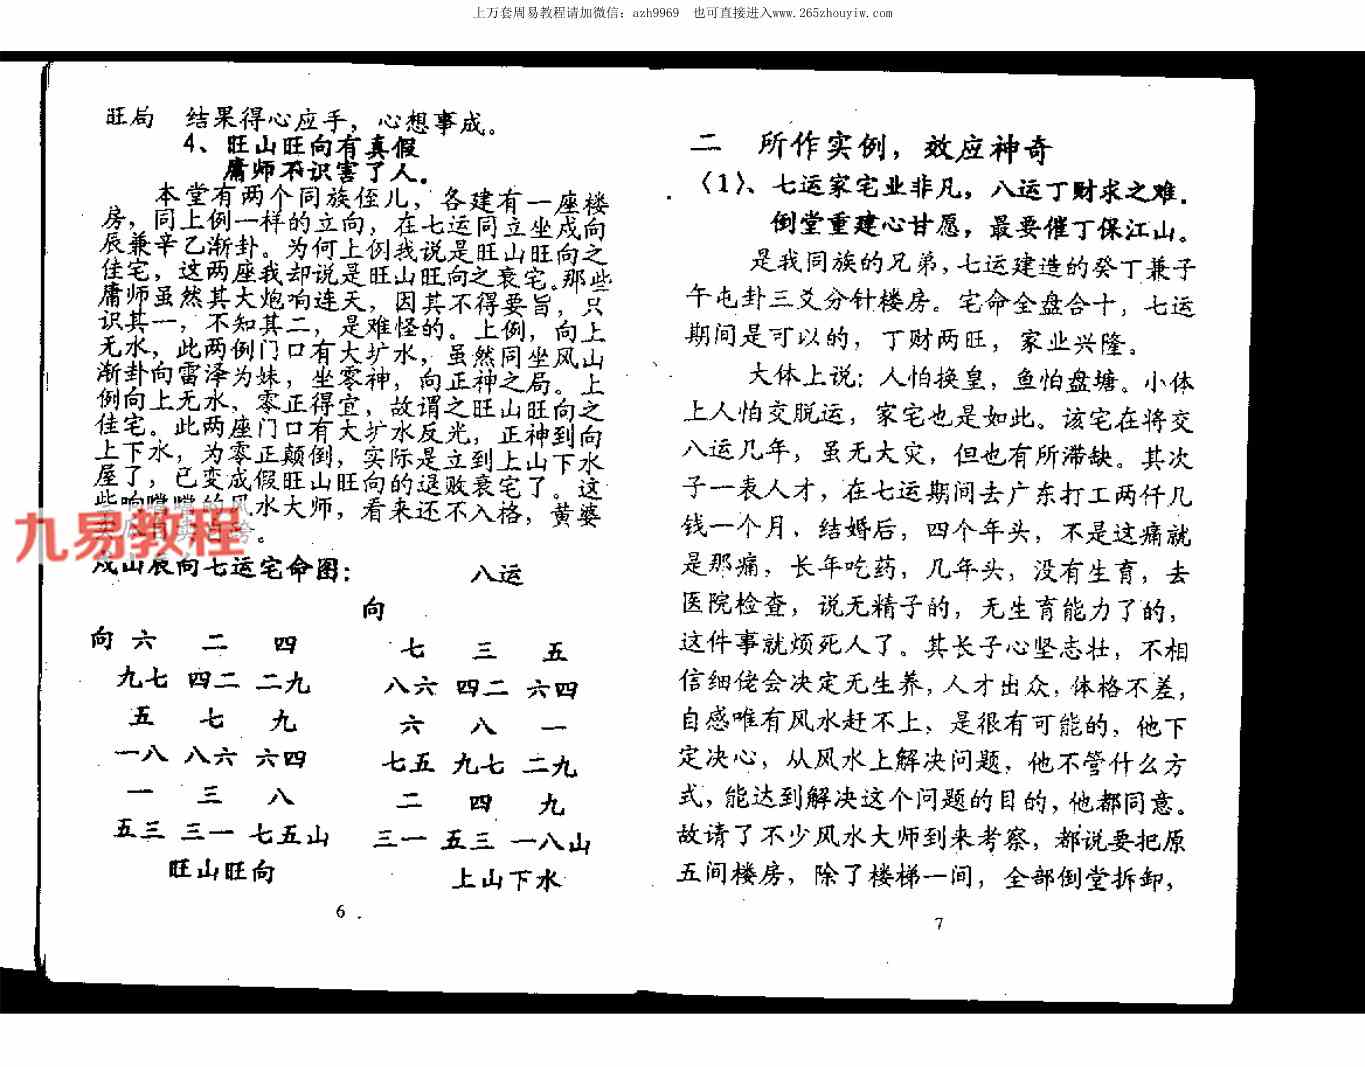 上万套周易教程请加微信：azh9969 也可直接进入www.265zhouyiw.com
旺局 结果得心应手，心想事成。
4、旺山旺向有真假
庸师不识害了人。
本堂有两个同族侄儿，各建有一座楼
房，同上例一样的立向，在七运同立坐戍向
辰兼辛乙渐卦。为何上例我说是旺山旺向之
佳宅，这两座我却说是旺山旺向之衰宅。那些
庸师虽然其大炮响连天，因其不得要旨，只
识其一，不知其二，是难怪的。上例，向上
无水，此两倒门口有大圹水，虽然同坐风山
渐卦向雷泽为妹，坐零神，向正神之局。上
例向上无水，零正得宜，故谓之旺山旺向之
佳宅。此两座门口有大圹水反光，正神到向
上下水，为零正颠倒，实际是立到上山下水
屋了，已变成假旺山旺向的退败衰宅了。这
些响噹噹的风水大师，看来还不入格，黄婆
九易教程
戍山辰向七运宅命图： 八运
向
向 六 二 四 七 三 五
九七 四二 二九 八六 四二 六四
五 七 九 六 八 一
一八 八六 六四 七五 九七 二九
一 三 八 二 四 九
五三 三一 七五山 三一 五三 一八山
旺山旺向 上山下水
6
二 所作实例，效应神奇
〈1〉、七运家宅业非凡，八运丁财求之难．
倒堂重建心甘愿，最要催丁保江山。
是我同族的兄弟，七运建造的癸丁兼子
午屯卦三爻分针楼房。宅命全盘合十，七运
期间是可以的，丁财两旺，家业兴隆。
大体上说：人怕换皇，鱼怕盘塘。小体
上人怕交脱运，家宅也是如此。该宅在将交
八运几年，虽无大灾，但也有所滞缺。其次
子一表人才，在七运期间去广东打工两仟几
钱一个月，结婚后，四个年头，不是这痛就
是那痛，长年吃药，几年头，没有生育，去
医院检查，说无精子的，无生育能力了的，
这件事就烦死人了。其长子心坚志壮，不相
信细佬会决定无生养，人才出众，体格不差，
自感唯有风水赶不上，是很有可能的，他下
定决心，从风水上解决问题，他不管什么方
式，能达到解决这个问题的目的，他都同意。
故请了不少风水大师到来考察，都说要把原
五间楼房，除了楼梯一间，全部倒堂拆卸，
7